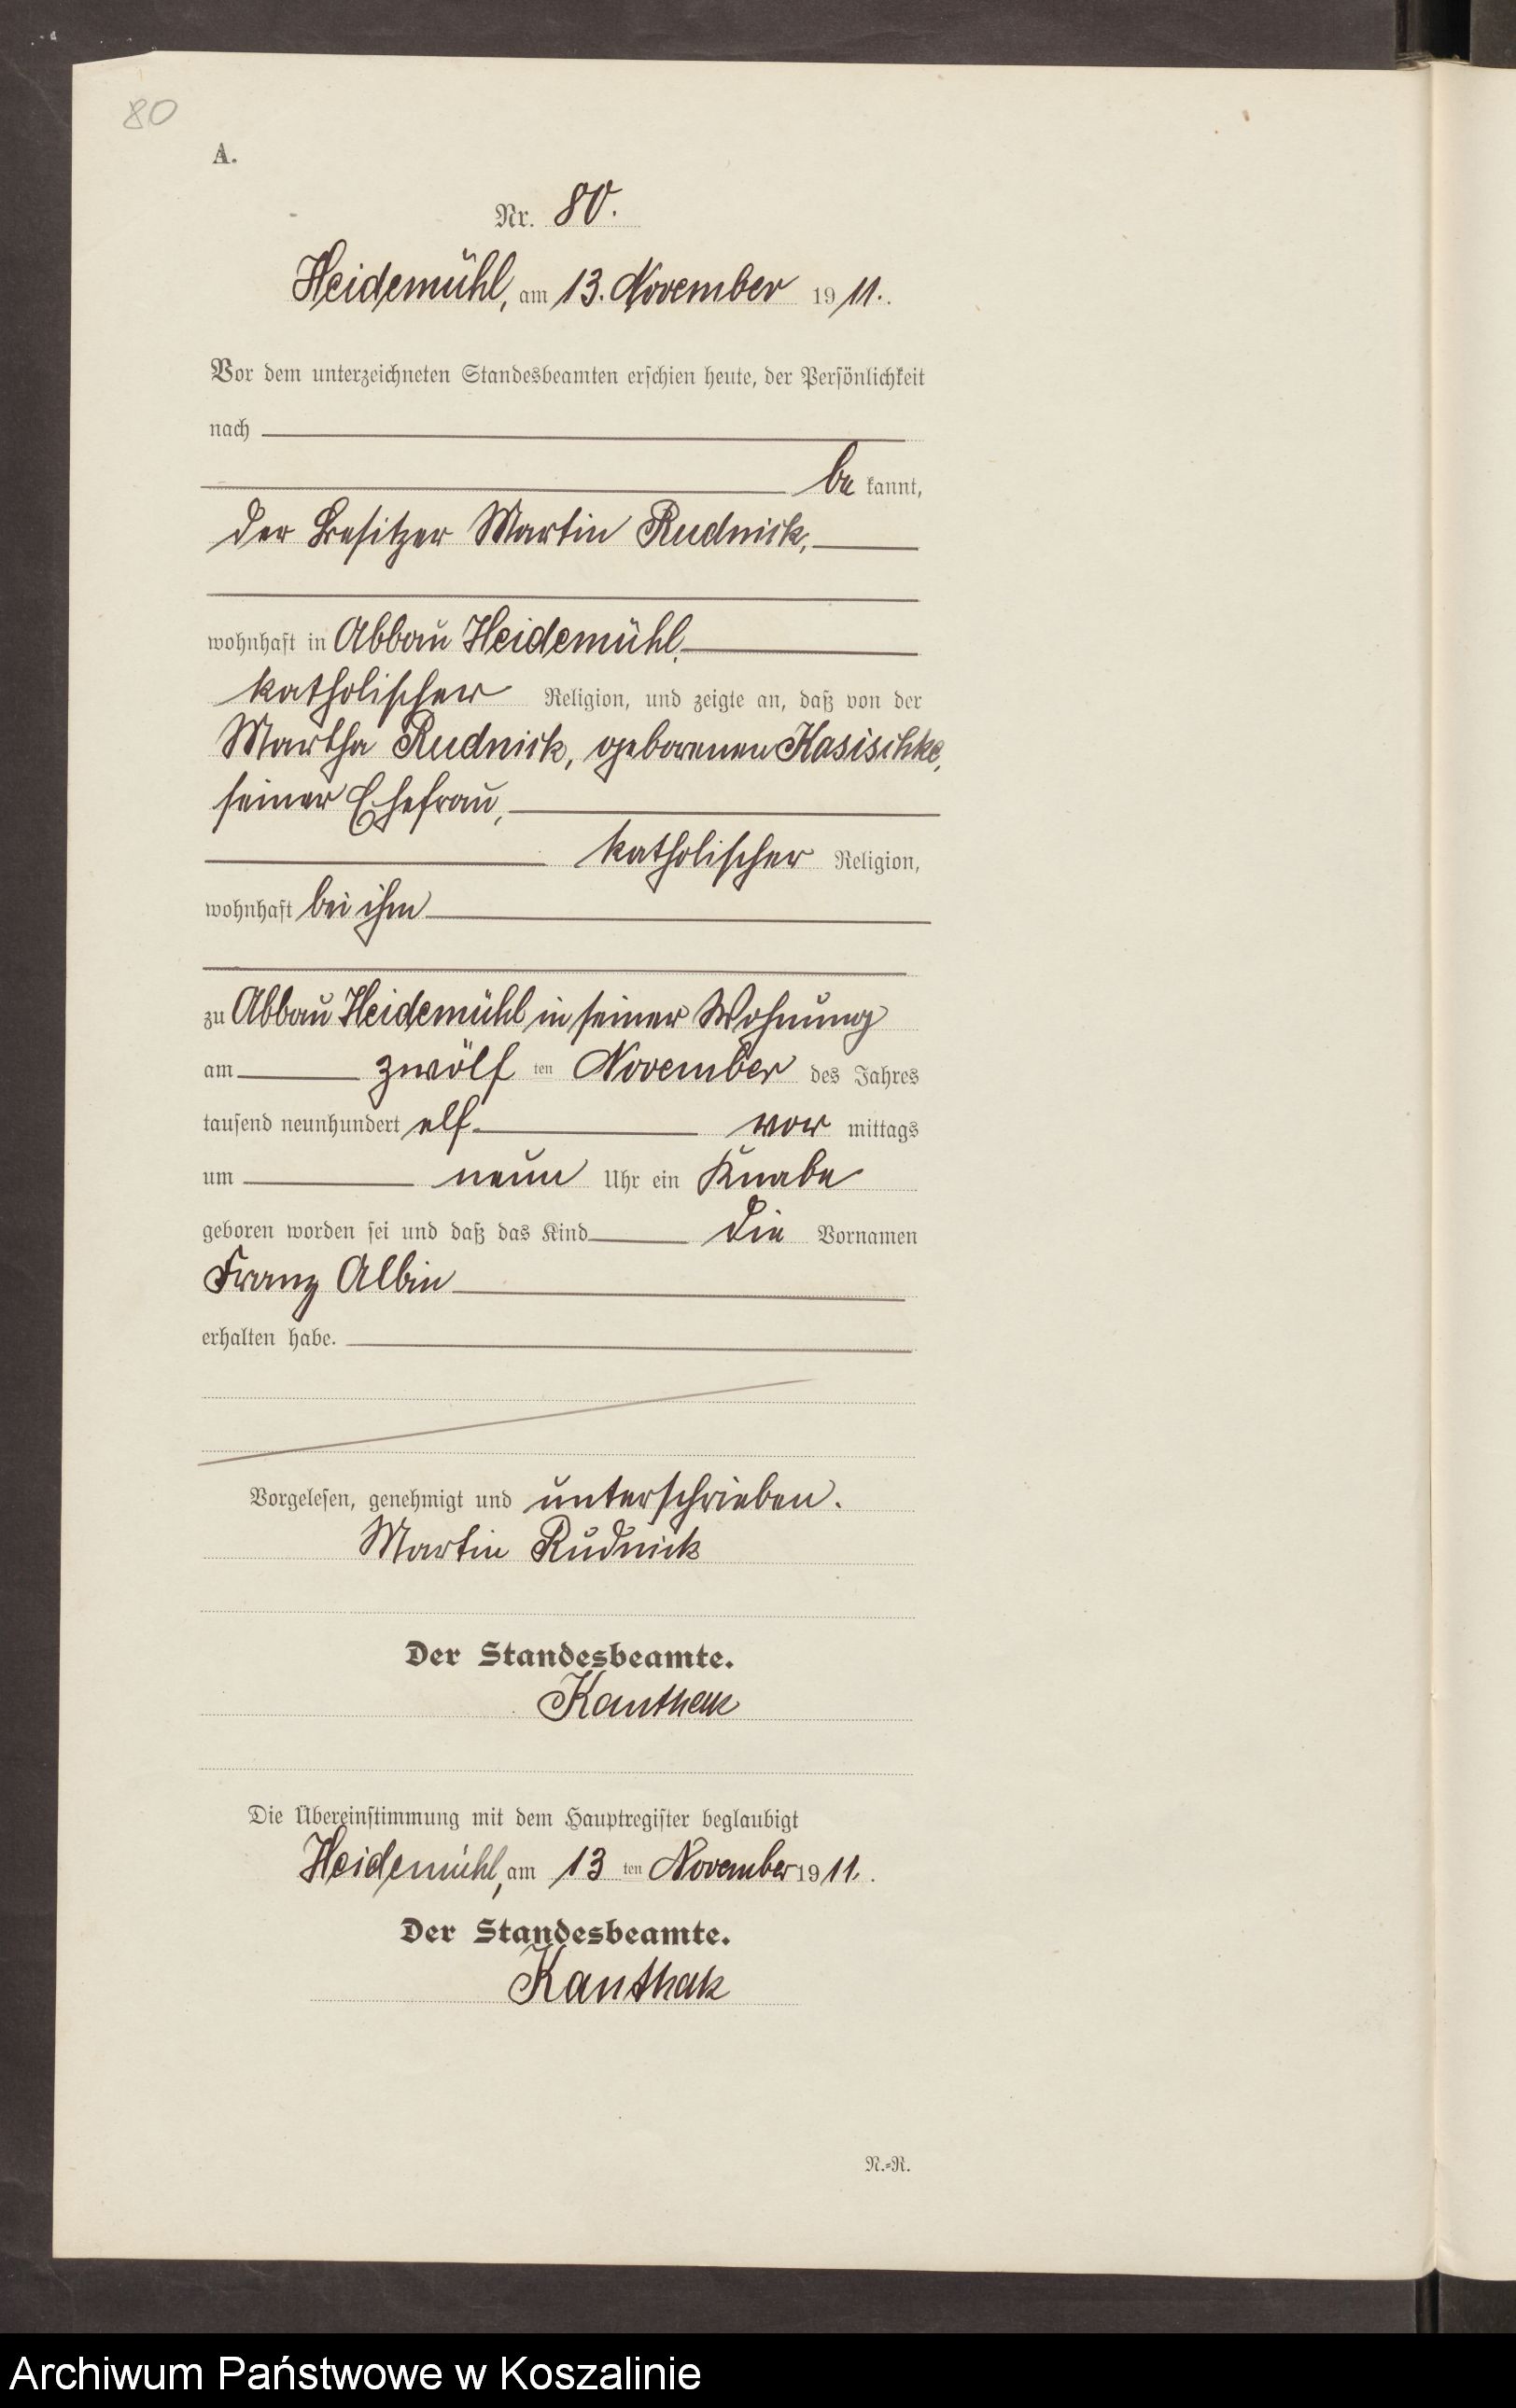 80
A.
Nr. 80.
Heidemühl, am 13. November 1911.
Vor dem unterzeichneten Standesbeamten erschien heute, der Persönlichkeit
nach
be kannt,
der Besitzer Martin Rudnick,
wohnhaft in Abbau Heidemühl,
katholischer Religion, und zeigte an, daß von der
Martha Rudnick, geborenen Kasischke,
seiner Ehefrau,
katholischer Religion,
wohnhaft bei ihm
zu Abbau Heidemühl in seiner Wohnung
am zwölf ten November des Jahres
tausend neunhundert elf vor mittags
um neun Uhr ein Knabe
geboren worden sei und daß das Kind die Vornamen
Franz Albin
erhalten habe.
Vorgelesen, genehmigt und unterschrieben.
Martin Rudnick
Der Standesbeamte.
Kanthak
Die Übereinstimmung mit dem Hauptregister beglaubigt
Heidemühl, am 13 ten November 1911.
Der Standesbeamte.
Kanthak
N.=R.
Archiwum Państwowe w Koszalinie